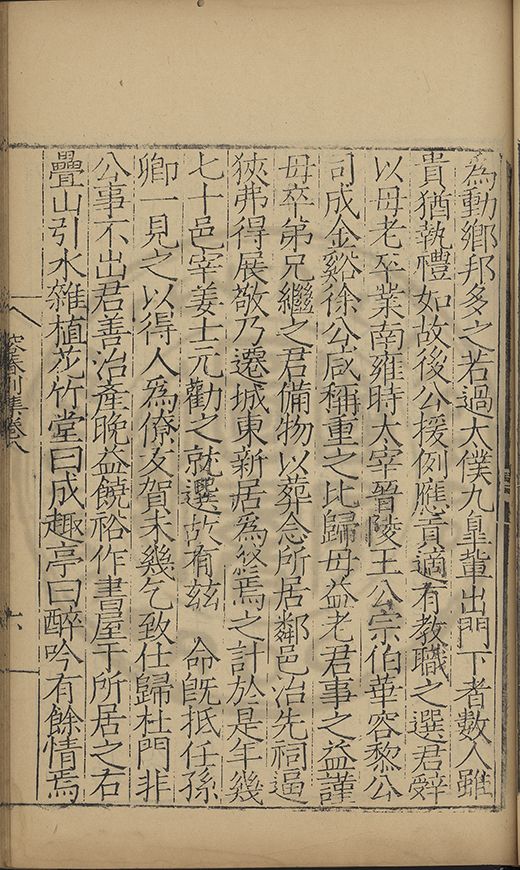 為動鄉邦多之若過太僕九皐輩出門下者數人雖
貴猶執禮如故後公援例應貢適有教職之選君辤
以母老卒業南雍時太宰晉陵王公宗伯華容黎公
司成金谿徐公咸稱重之比歸母益老君事之益謹
母卒第兄繼之君備物以葬念所居鄰邑治先祠逼
狹弗得展敬乃遷城東新居為終焉之計於是年幾
七十邑宰姜士元勸之就選故有兹　命旣抵任孫
卿一見之以得人爲僚友賀未幾乞致仕歸杜門非
公事不出君善治產晚益饒裕作書屋于所居之右
疊山引水雜植花竹堂曰成趣亭曰醉吟有餘情焉
集卷八
六